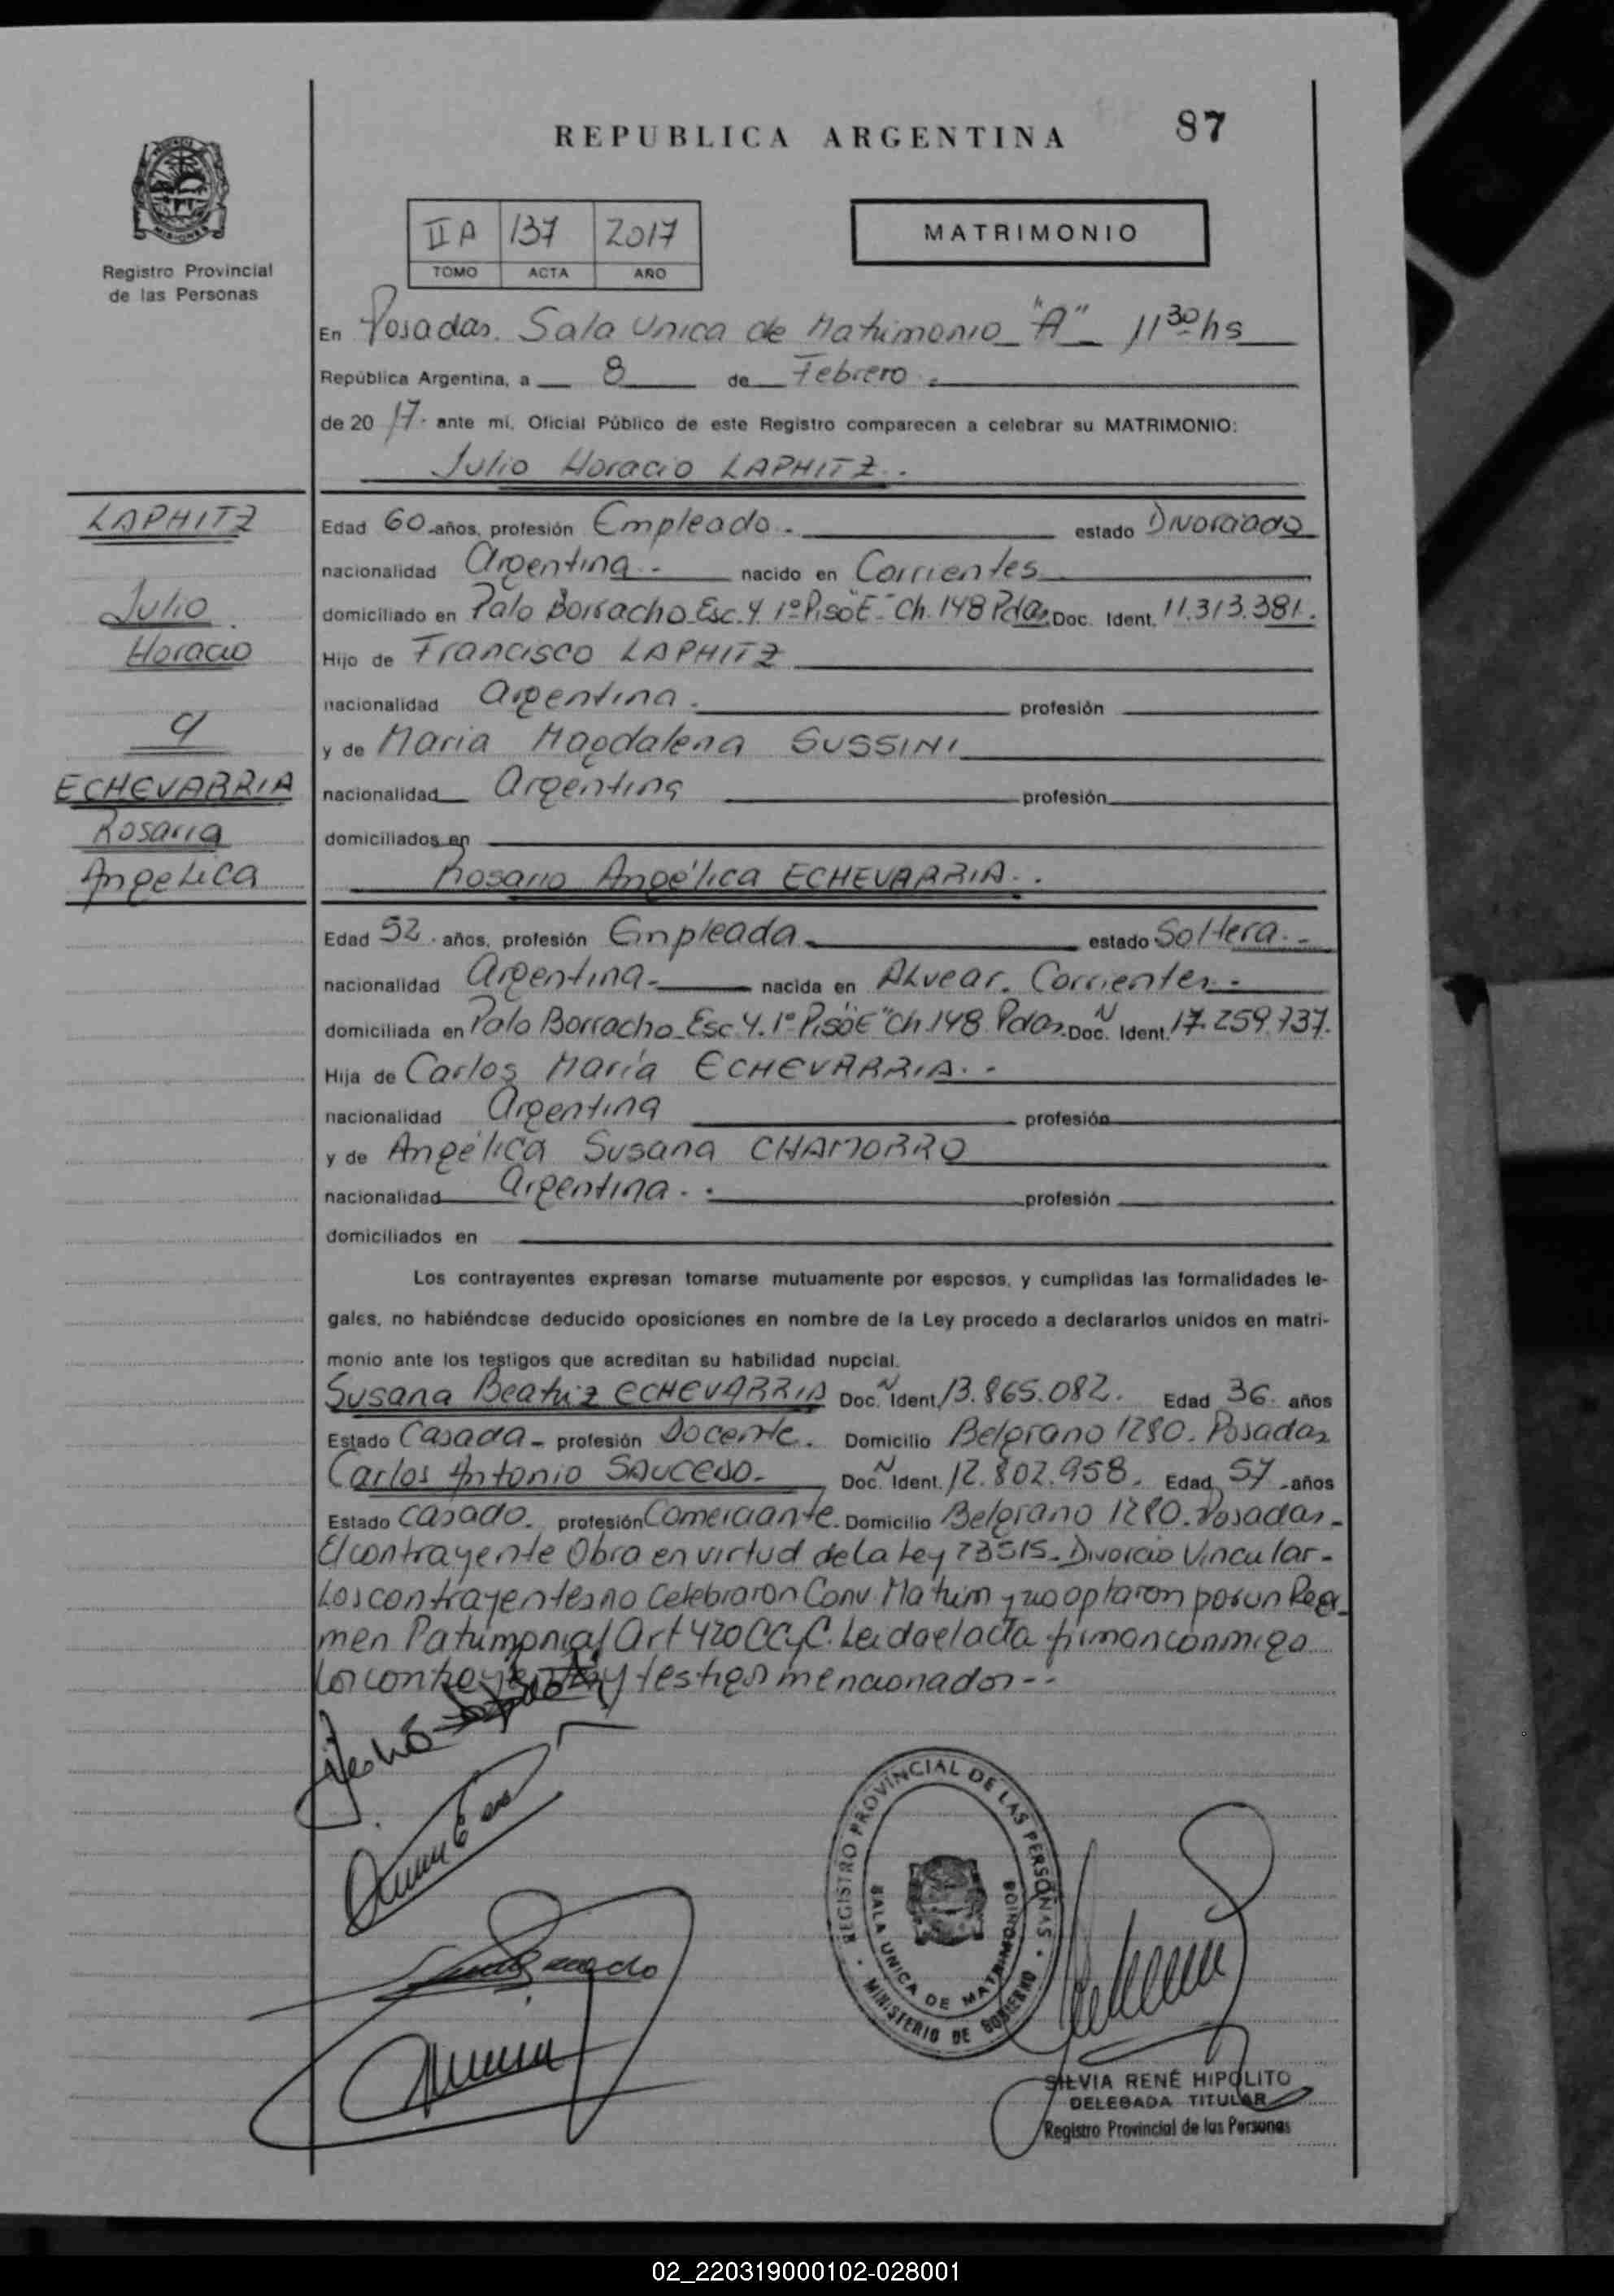 REPUBLICA ARGENTINA
87
MISIONES
Registro Provincial
de las Personas
II A 137 2017
TOMO ACTA AÑO
MATRIMONIO
En Posadas. Sala Unica de Matrimonio "A" 11 30 hs
República Argentina, a 8 de Febrero.
de 20 17. ante mí, Oficial Público de este Registro comparecen a celebrar su MATRIMONIO:
Julio Horacio LAPHITZ.
LAPHITZ
Julio
Horacio
y
ECHEVARRIA
Rosario
Angelica
Edad 60 años, profesión Empleado.- estado Divorciado
nacionalidad Argentina.- nacido en Corrientes
domiciliado en Palo Borracho Esc. 4. 1º Piso "E" Ch. 148 Pdas Doc. Ident. 11.313.381.
Hijo de Francisco LAPHITZ
nacionalidad Argentina. profesión
y de Maria Magdalena SUSSINI
nacionalidad Argentina profesión
domiciliados en
Rosario Angélica ECHEVARRIA.
Edad 52. años, profesión Empleada. estado Soltera.-
nacionalidad Argentina.- nacida en Alvear. Corrientes.-
domiciliada en Palo Borracho Esc. 4. 1º Piso "E" Ch. 148 Pdas. Doc. N Ident. 17.259.737.
Hija de Carlos María ECHEVARRIA.-
nacionalidad Argentina profesión
y de Angélica Susana CHAMORRO
nacionalidad Argentina.- profesión
domiciliados en
Los contrayentes expresan tomarse mutuamente por esposos, y cumplidas las formalidades le-
gales, no habiéndose deducido oposiciones en nombre de la Ley procedo a declararlos unidos en matri-
monio ante los testigos que acreditan su habilidad nupcial.
Susana Beatriz ECHEVARRIA Doc. N Ident. 13.865.082. Edad 36. años
Estado Casada - profesión Docente. Domicilio Belgrano 1280. Posadas
Carlos Antonio SAUCEDO. Doc. N Ident. 12.802.958. Edad 57 años
Estado Casado. profesión Comerciante. Domicilio Belgrano 1280. Posadas -
El contrayente Obra en virtud de la Ley 23515 - Divorcio Vincular -
Los contrayentes no Celebraron Conv. Matrim y no optaron por un Regi-
men Patrimonial Art 420 CCyC. Leida el acta firman conmigo
los contrayentes y testigos mencionados --
REGISTRO PROVINCIAL DE LAS PERSONAS
SALA UNICA DE MATRIMONIOS
MINISTERIO DE GOBIERNO
SILVIA RENÉ HIPOLITO
DELEGADA TITULAR
Registro Provincial de las Personas
02_220319000102-028001